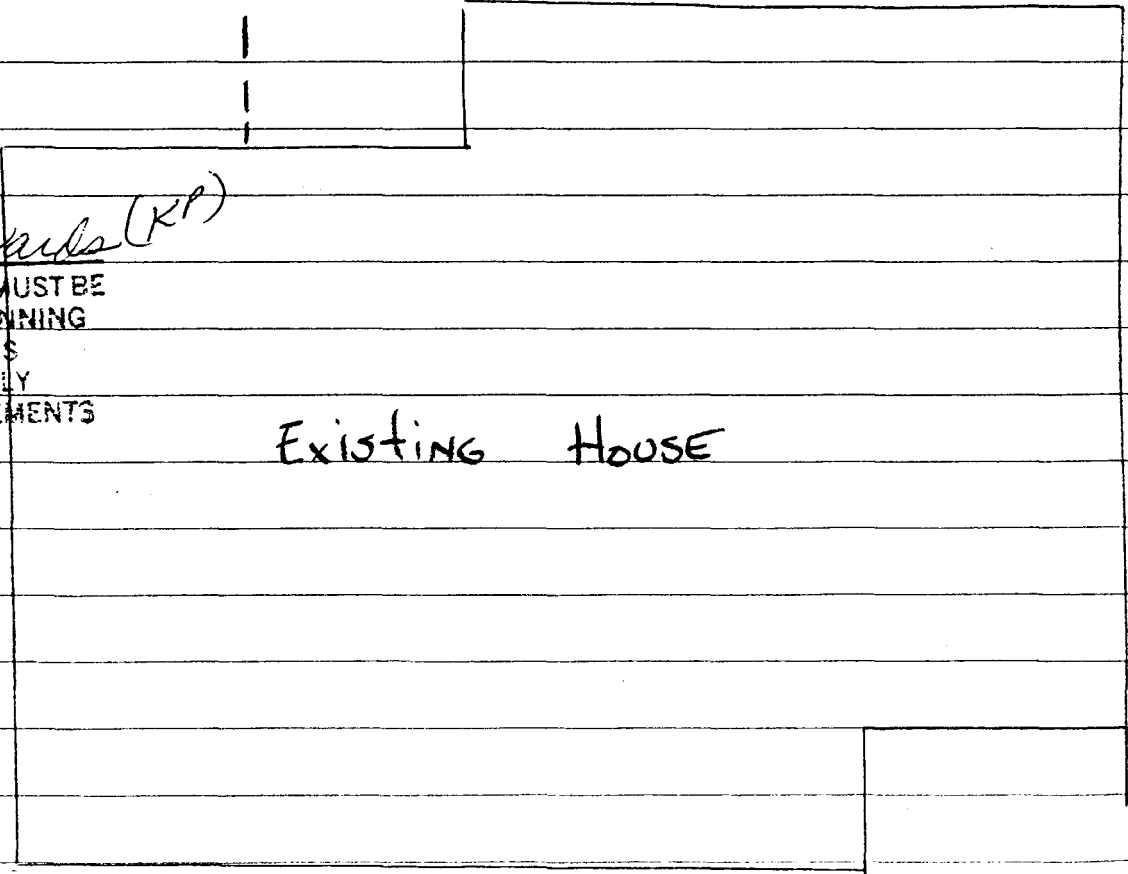 (KP)
MUST BE
NNING
S
LY
EMENTS
Existing House